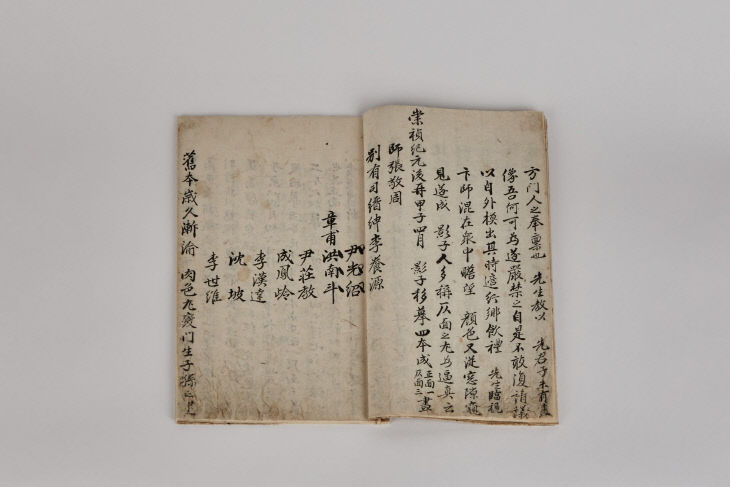 方門人之奉稟也 先生敎以 先君子未有畫
像吾何可爲遂嚴禁之自是不敢復請議
以自外模出其時適行鄕飮禮 先生臨視
卞師混在衆中瞻望 顔色又從窓隙窺
見遂成 影子人多稱仄面之尤爲逼眞云
崇禎紀元後再甲子四月 影子移摹四本成正面一仄面三畫
師張敬周
別有司縉紳李養源
尹光紹
章甫洪南斗
尹莊敎
成鳳岭
李漢逵
沈坡
李世維
舊本歲久漸渝 肉色尤變門生子孫